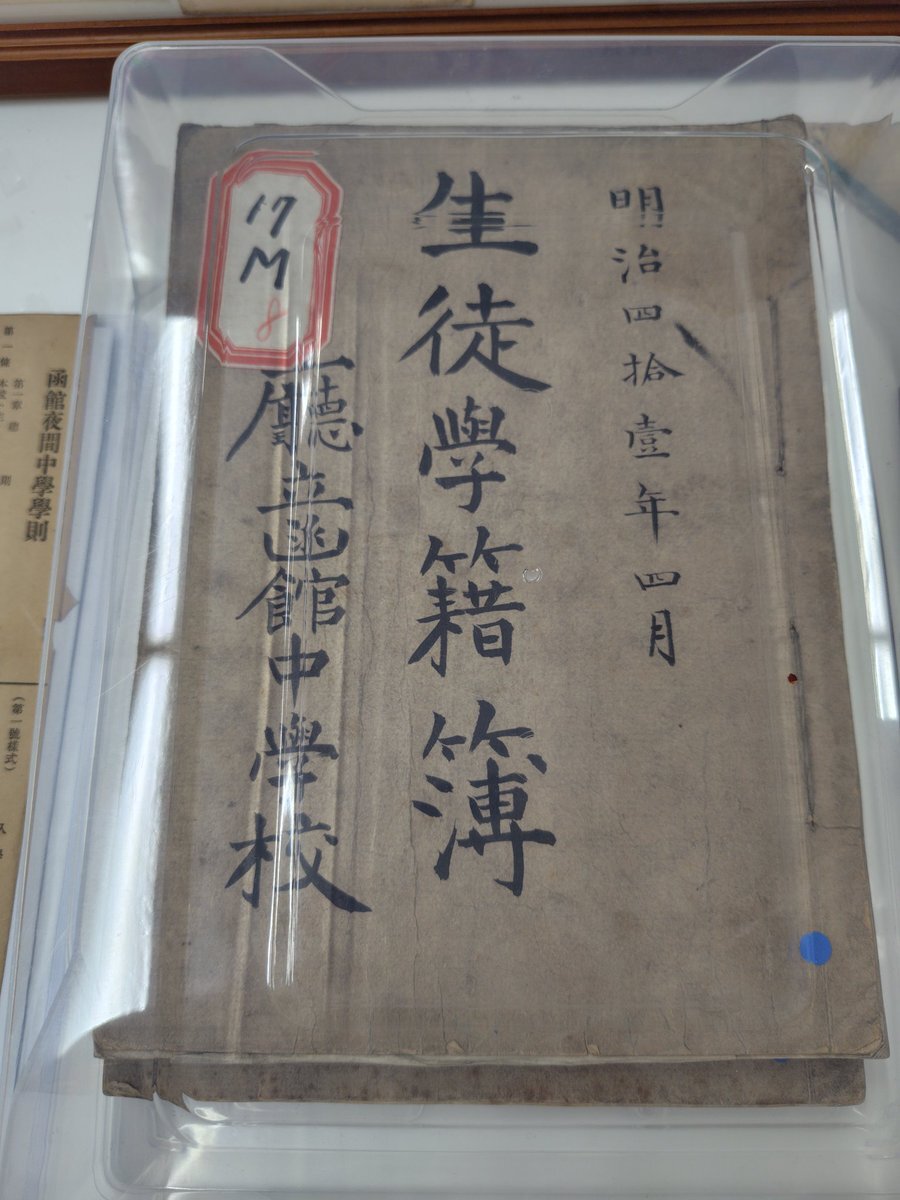 明治四拾壹年四月
生徒學籍簿
廳立函館中學校
17
M
8
函館夜間中學學則
第一章 總 則
(第一號樣式)